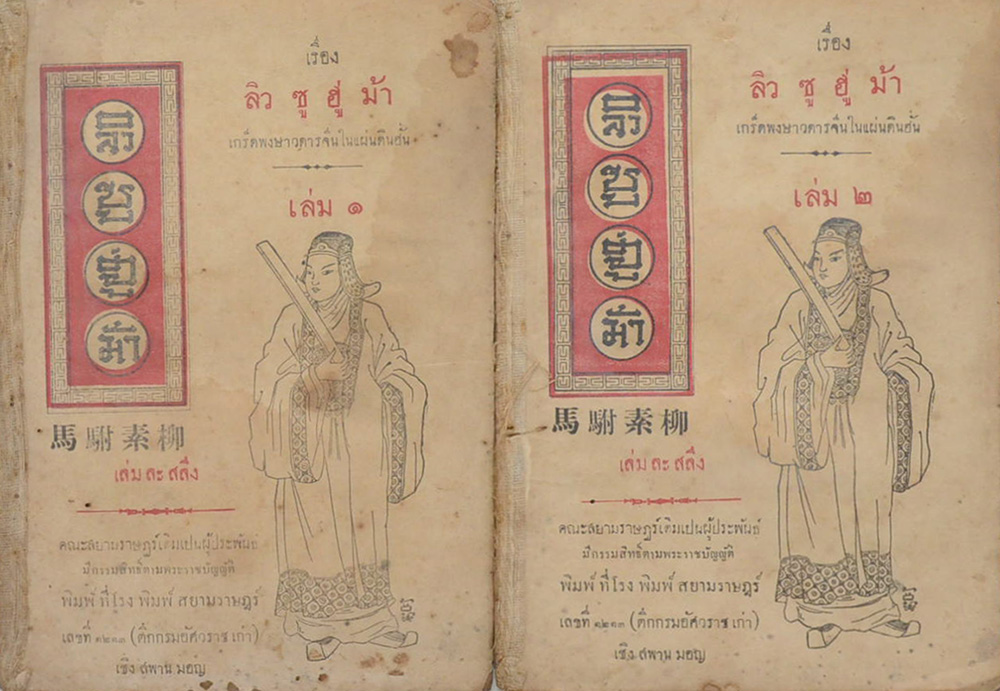 เรื่อง
ลิว ซู ฮู่ ม้า
เกร็ดพงษาวดารจีนในแผ่นดินฮั่น
เล่ม ๑
ลิว
ซู
ฮู่
ม้า
馬駙素柳
เล่ม ละ สลึง
คณะสยามราษฎร์เดิมเปนผู้ประพันธ์
มีกรรมสิทธิ์ตามพระราชบัญญัติ
พิมพ์ ที่โรง พิมพ์ สยามราษฎร์
เลขที่ ๑๒๑๓ (ตึกกรมอัศวราช เก่า)
เชิง สพาน มอญ
เรื่อง
ลิว ซู ฮู่ ม้า
เกร็ดพงษาวดารจีนในแผ่นดินฮั่น
เล่ม ๒
ลิว
ซู
ฮู่
ม้า
馬駙素柳
เล่ม ละ สลึง
คณะสยามราษฎร์เดิมเปนผู้ประพันธ์
มีกรรมสิทธิ์ตามพระราชบัญญัติ
พิมพ์ ที่โรง พิมพ์ สยามราษฎร์
เลขที่ ๑๒๑๓ (ตึกกรมอัศวราช เก่า)
เชิง สพาน มอญ